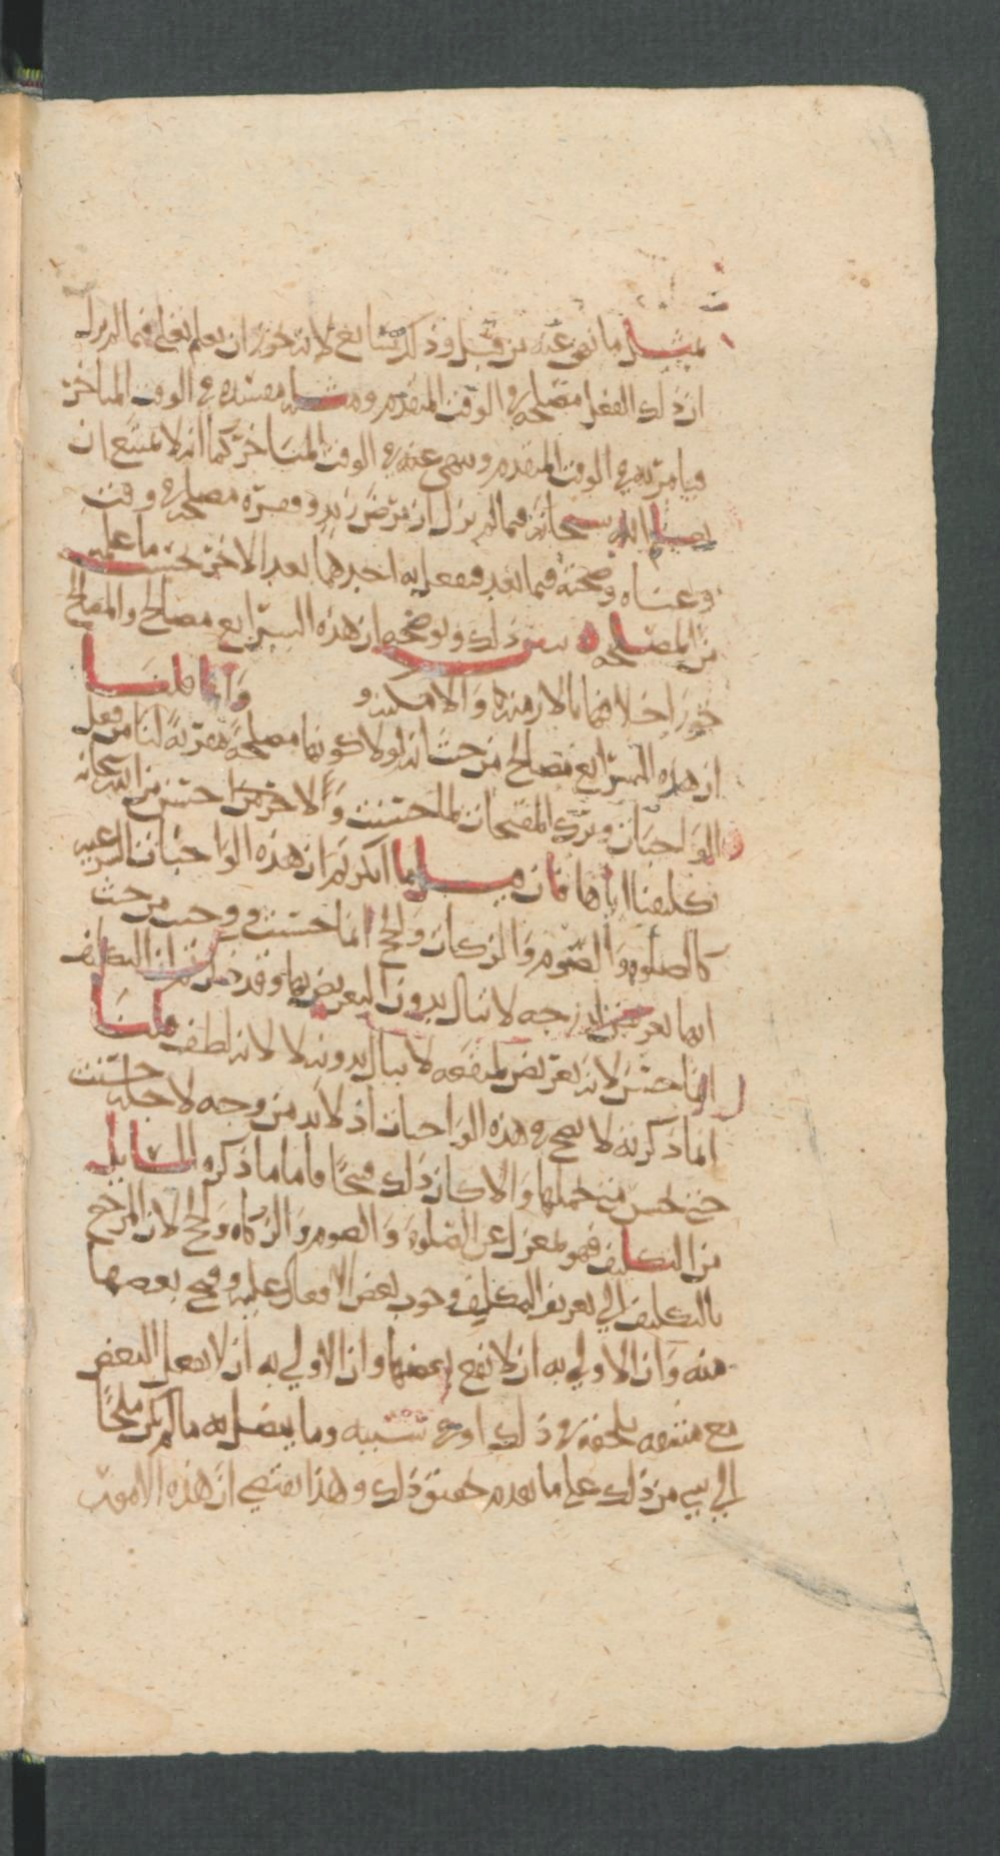 بمثل ما نهى عنه من قبل وذلك شايع لانه يجوز ان يعلم تعلى فيما لم يزل
ان ذلك الفعل مصلحة في الوقت المتقدم ومثله مفسدة في الوقت المتاخر
فيامر به في الوقت المتقدم وينهى عنه في الوقت المتاخر كما انه لا يمتنع ان
يعلم الله سبحانه فيما لم يزل ان مرض زيد وفقره مصلحة في وقت
وغناه وصحته فيما بعد فيفعل به احدهما بعد الاخر بحسب ما علمه
من المصلحة يبين ذلك ويوضحه ان هذه الشرايع مصالح والمصالح
يجوز اختلافها بالازمنة والامكنة و وانما قلنا
ان هذه الشرايع مصالح من حيث انه لولا كونها مصلحة مقربة لنا من فعل
الواجبات وترك المقبحات لما حسنت والاخر ما حسن من الله سبحانه
تكليفنا اياها فان قيل لما انكرتم ان هذه الواجبات الشرعية
كالصلوة والصوم والزكاة والحج انما حسنت ووجبت من حيث
انها تعريض لدرجه لا تنال بدون التعريض بها وقد ذكرتم ان التكليف
انما حسن لانه تعريض لمنفعه لا تنال بدونه لا لانه لطف قلنا
انما ذكرته لا يصح في هذه الواجبات اذ لا بد من وجه لاجله حسنت
حتى يحسن من تحملها والا كان ذلك قبيحا فاما ما ذكره السايل
من التكليف فهو بمعزل عن الصلوة والصوم والزكاه والحج لان المرجع
بالتكليف الى تعريف المكلف وجوب بعض الافعال عليه وقبح بعضها
منه وان الاولى به ان لا يقع بعضها وان الاولى به ان لا يفعل البعض
مع مشقه تلحقه في ذلك او في سببه وما يتصل به ما لم يكن ملجأ
الى شي من ذلك على ما تقدم تحقيق ذلك وهذا يقتضي ان هذه الامور